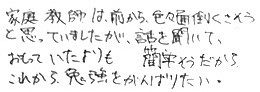 家庭教師は、前から、色々面倒くさそう
と思っていましたが、話を聞いて、
おもっていたよりも 簡単そうだから
これから、勉強をがんばりたい。